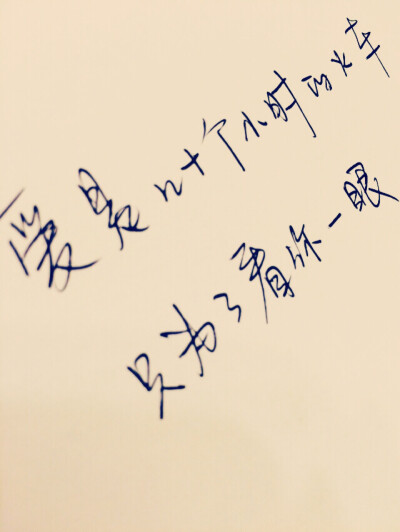 爱是几十个小时的火车
只为了看你一眼